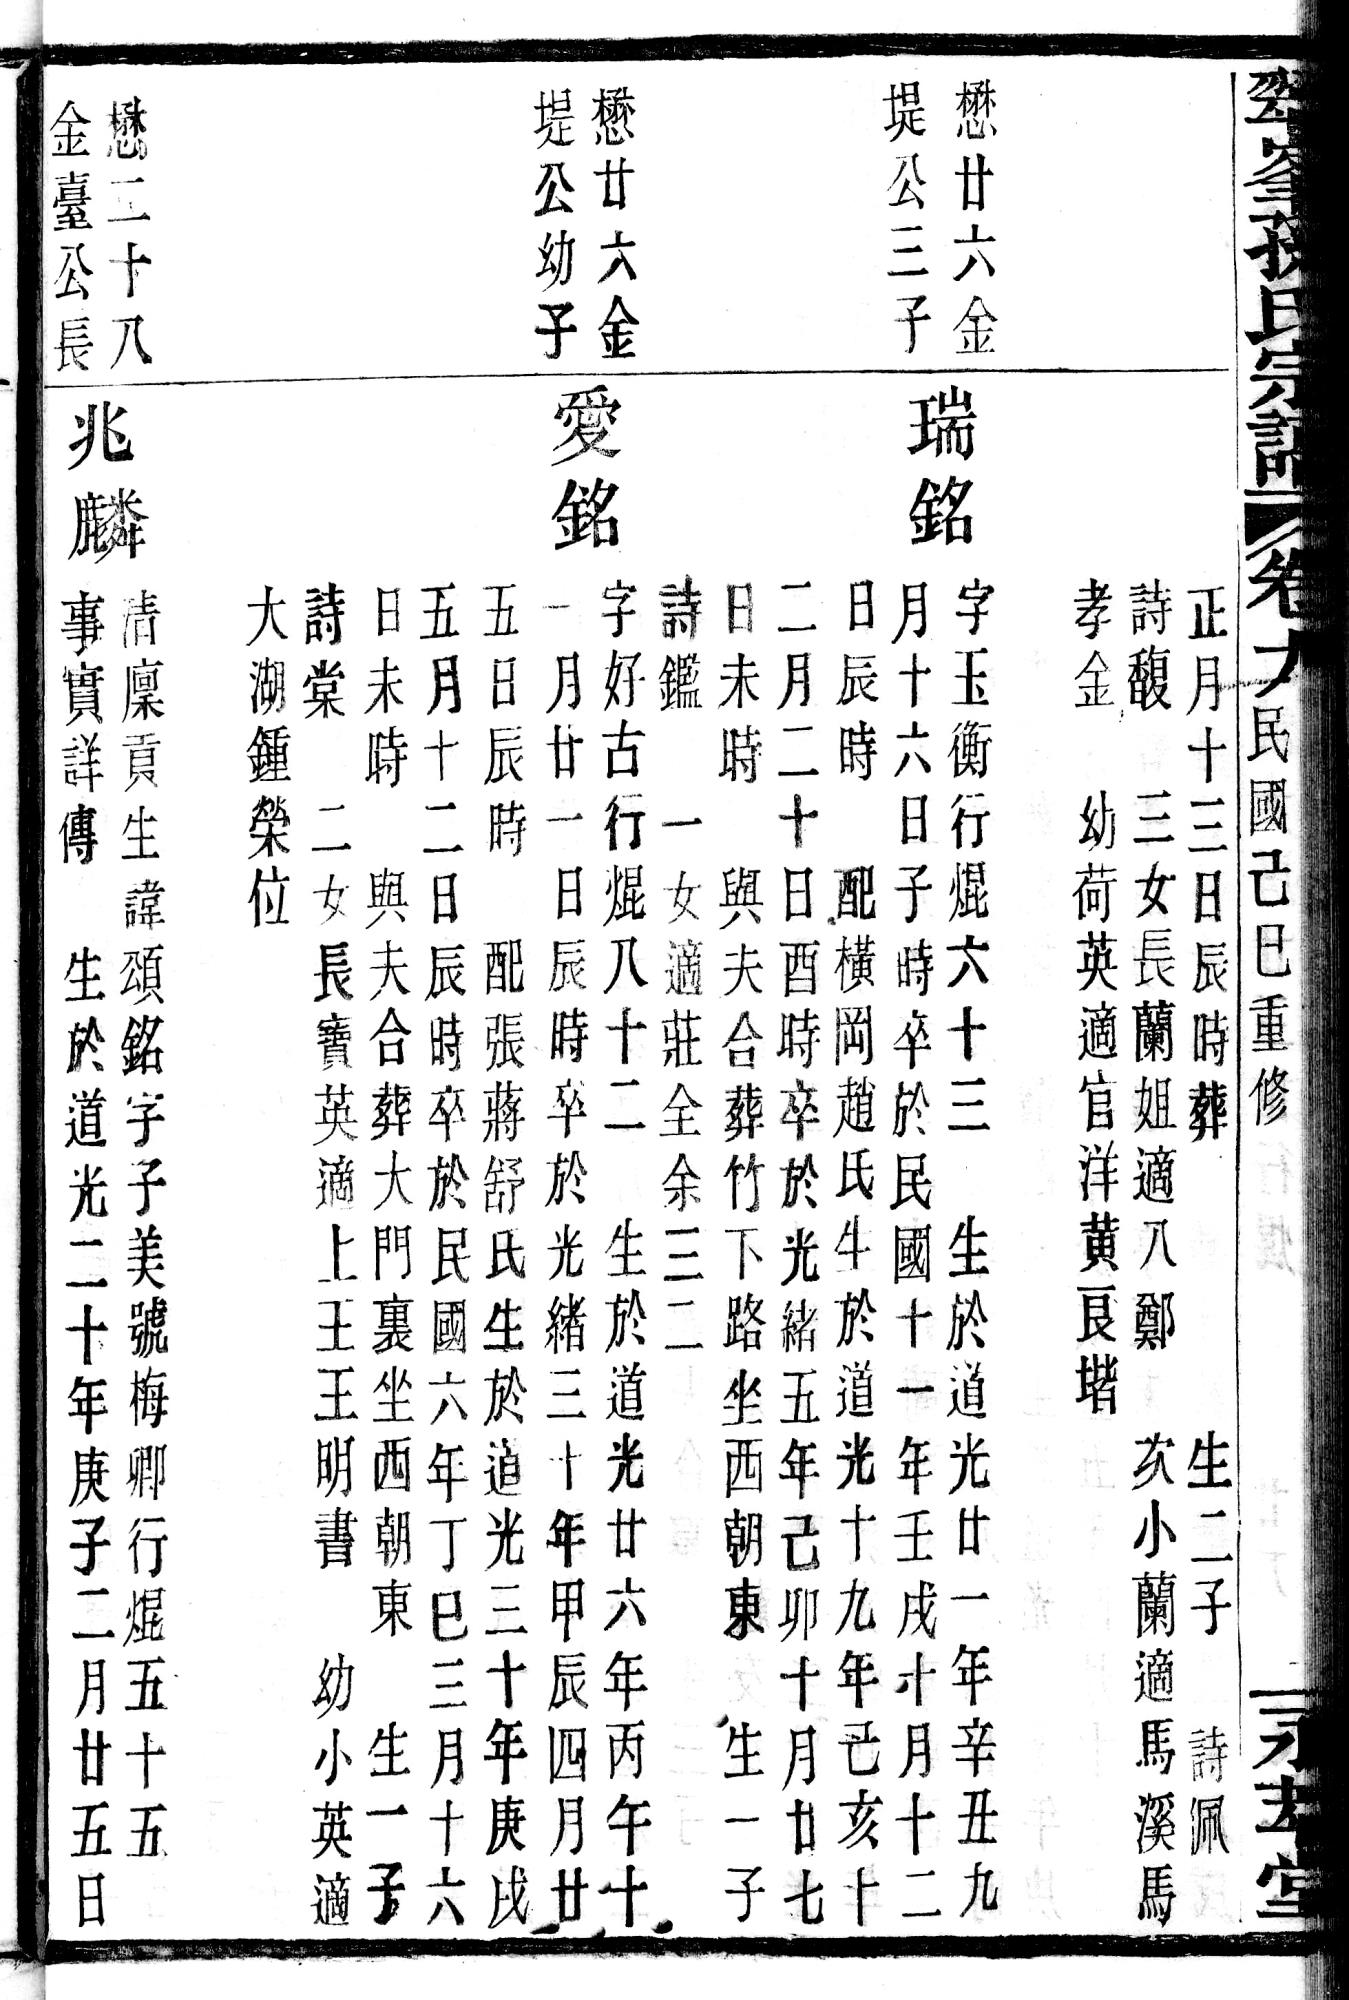 氏宗譜 卷九 民國己巳重修 永孝堂
正月十三日辰時葬 生二子 詩佩
詩馥 三女長蘭姐適八鄭 次小蘭適馬溪馬
孝金 幼荷英適官洋黃良堦
懋廿六金
堤公三子
瑞銘
字玉衡行焜六十三 生於道光廿一年辛丑九
月十六日子時卒於民國十一年壬戌十月十二
日辰時 配橫岡趙氏生於道光十九年己亥十
二月二十日酉時卒於光緒五年己卯十月廿七
日未時 與夫合葬竹下路坐西朝東 生一子
詩鑑 一女適莊全余三二
懋廿六金
堤公幼子
愛銘
字好古行焜八十二 生於道光廿六年丙午十
一月廿一日辰時卒於光緒三十年甲辰四月廿
五日辰時 配張蔣舒氏生於道光三十年庚戌
五月十二日辰時卒於民國六年丁巳三月十六
日未時 與夫合葬大門裏坐西朝東 生一子
詩棠 二女長寶英適上王王明書 幼小英適
大湖鍾榮位
懋二十八
金臺公長
兆麟
清廩貢生諱頌銘字子美號梅卿行焜五十五
事實詳傳 生於道光二十年庚子二月廿五日